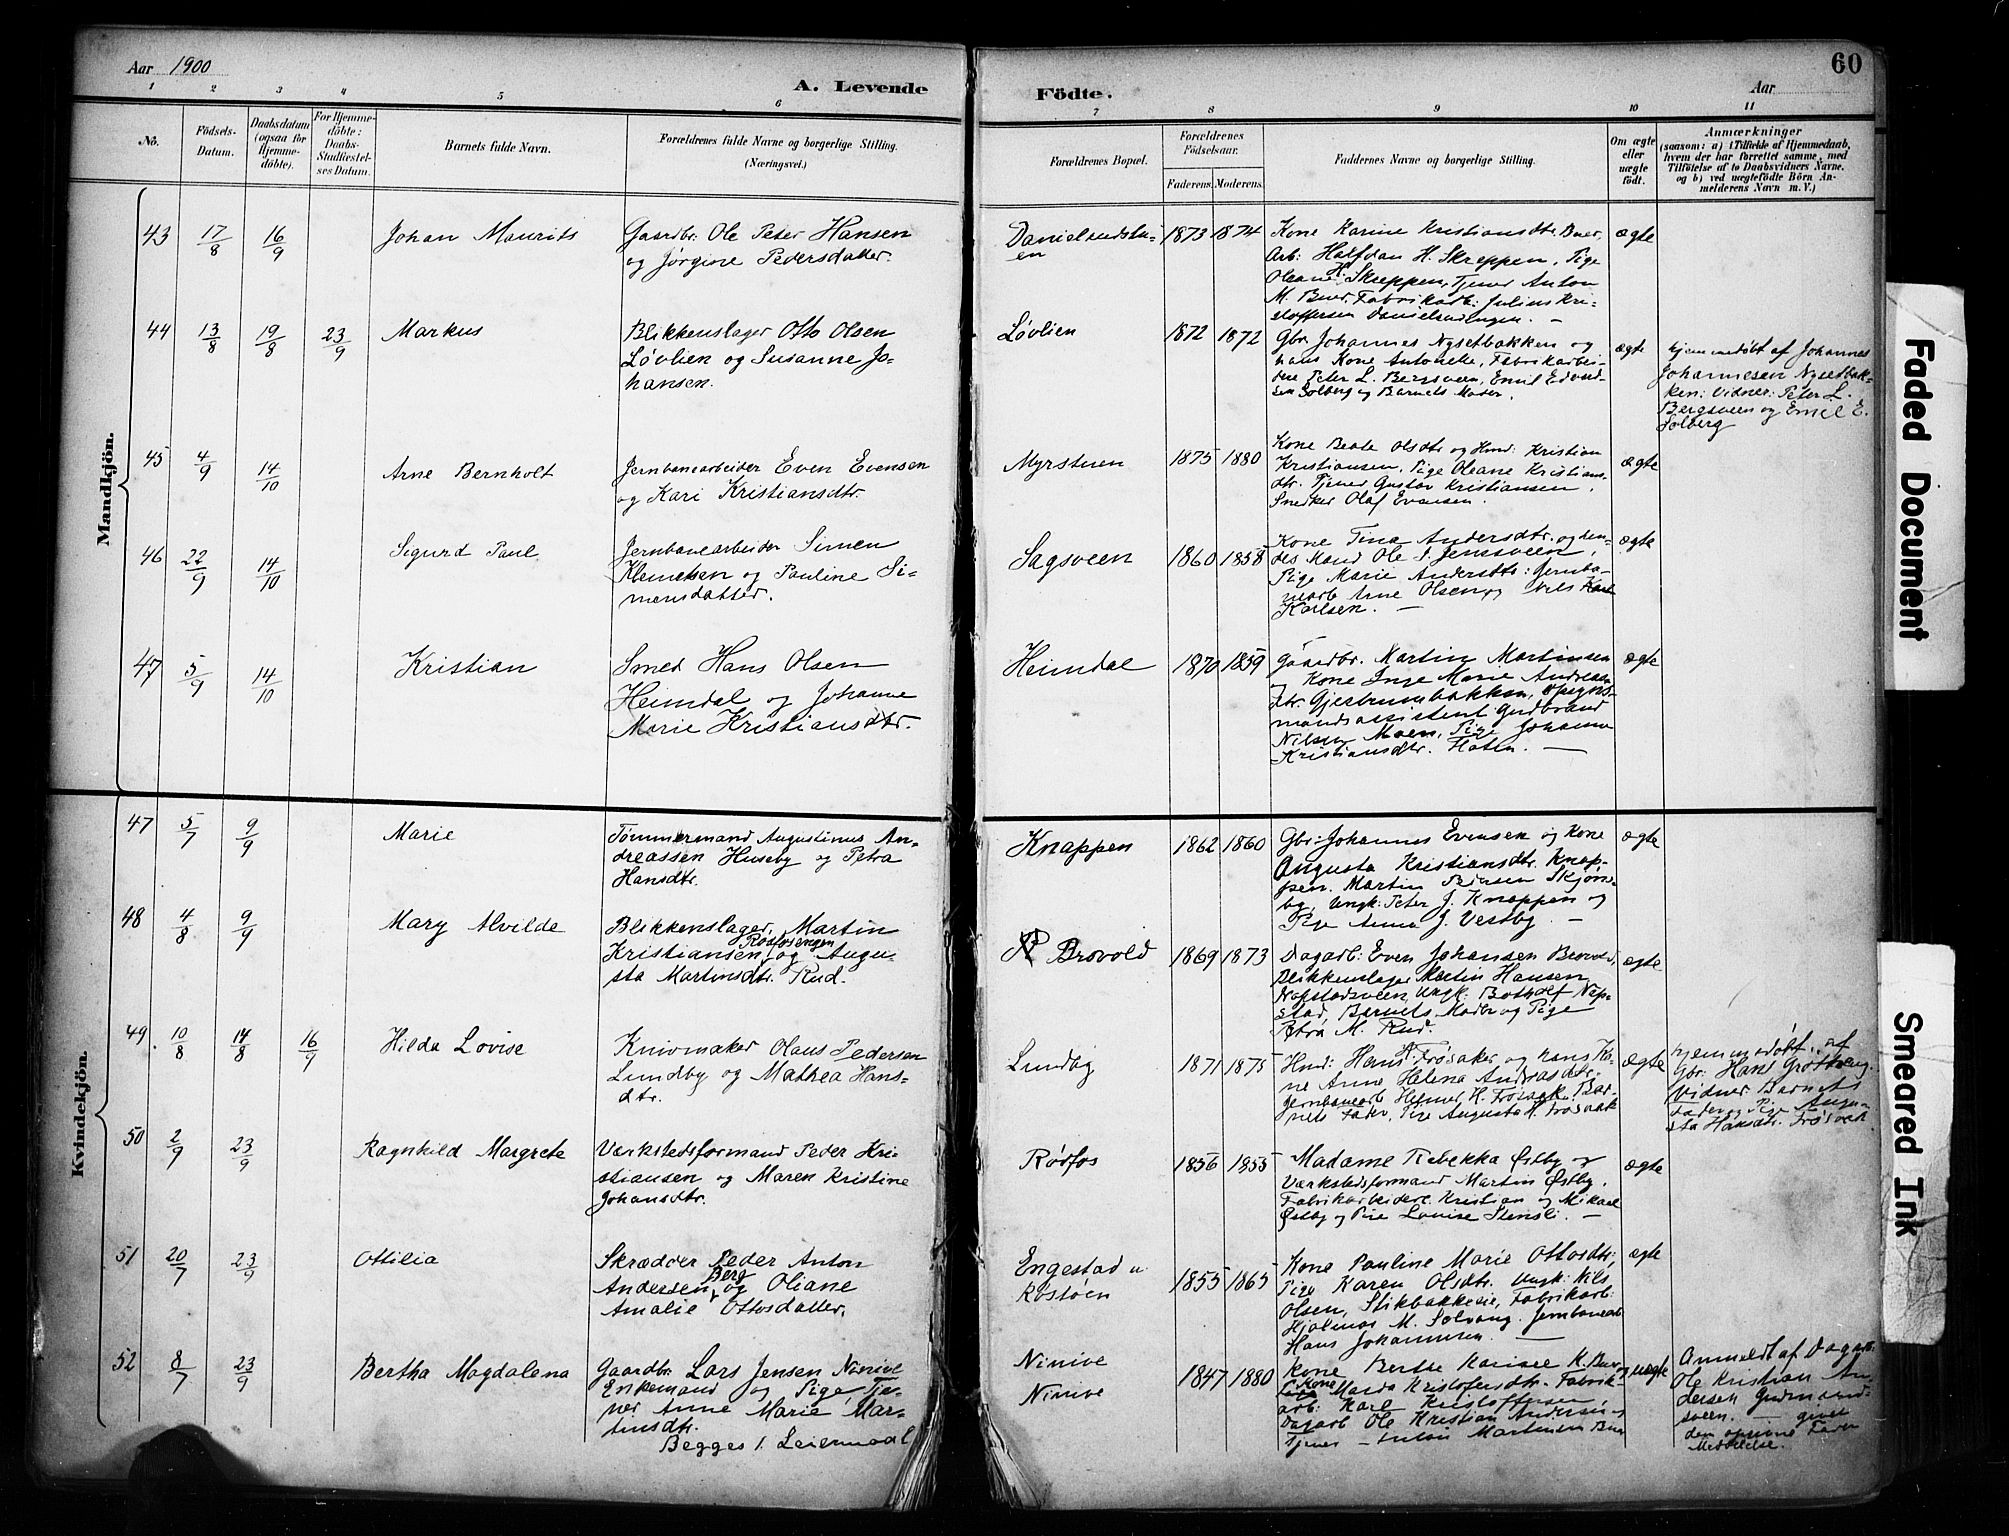 Aar 1900
A. Levende
Födte.
Aar
60
1 2 3 4 5 6 7 8 9 10 11
No.
Födsels-
Datum.
Daabsdatum
(ogsaa for
Hjemme-
döbte).
For Hjemme-
döbte:
Daabs-
Stadfæstel-
ses Datum.
Barnets fulde Navn.
Forældrenes fulde Navne og borgerlige Stilling.
(Næringsvei.)
Forældrenes Bopæl.
Forældrenes
Födselsaar.
Faderens. Moderens.
Faddernes Navne og borgerlige Stilling.
Om ægte
eller
uægte
födt.
Anmærkninger
(saasom: a) i Tilfælde af Hjemmedaab,
hvem der har forrettet samme, med
Tilföielse af to Daabsvidners Navne,
og b) ved uægtefödte Börn An-
melderens Navn m. V.)
Mandkjön.
43 17/8 16/9 Johan Maurits
Gaardbr. Ole Peter Hansen
og Jørgine Pedersdatter.
Danielsedstu-
en
1873 1874
Kone Karine Kristiansdtr. Buer,
Arb: Halfdan H. Skreppen, Pige
Oleane H. Skreppen, Tjener Anton
M. Buer, Fabrikarb: Julius Kri-
stoffersen Danielsedengen. —
ægte
44 13/8 19/8 23/9 Markus
Blikkenslager Otto Olsen
Løvlien og Susanne Jo-
hansen.
Løvlien
1872 1872
Gbr. Johannes Nysetbakken og
hans Kone Antonette, Fabrikarbei-
dere Peter L. Bergsveen, Emil Edvard-
sen Solberg og Barnets Moder.
ægte
hjemmedøbt af Johannes
Johannesen Nysetbak-
ken: Vidner: Peter L.
Bergsveen og Emil E.
Solberg
45 4/9 14/10 Arne Bernholt
Jernbanearbeider Even Evensen
og Kari Kristiansdtr.
Myrstuen
1875 1880
Kone Beate Olsdtr og Hmd: Kristian
Kristiansen, Pige Oleane Kristians-
dtr. Tjener Gustav Kristiansen,
Snedker Olaf Evensen.
ægte
46 22/9 14/10 Sigurd Paul
Jernbanearbeider Simen
Klemetsen og Pauline Si-
mensdatter.
Sagsveen
1860 1858
Kone Tina Andersdtr. og hen-
des Mand Ole J. Jensveen,
Pige Marie Andersdtr: Jernba-
nearb Arne Olsen og Nils
Karlsen. —
ægte
47 5/9 14/10 Kristian
Smed Hans Olsen
Heimdal og Johanne
Marie Kristiansdtr.
Heimdal
1870 1859
Gaardbr. Martin Martinsen
og Kone Inge Marie Andreas-
dtr. Gjerbrumbakken, Opsyns-
mandsassistent Gudbrand
Nilsen Moen, Pige Johanne
Kristiansdtr. Flaten. —
ægte
Kvindekjön.
47 5/7 9/9 Marie
Tømmermand Augustinus An-
dreassen Huseby og Petra
Hansdtr.
Knappen
1862 1860
Gbr: Johannes Evensen og Kone
Augusta Kristiansdtr. Knap-
pen. Martin Skjøns-
by, Ungk: Peter J. Knappen og
Pige Anna J. Vestby. —
ægte
48 4/8 9/9 Mary Alvilde
Blikkenslager Martin
Kristiansen Rødfosengen og Augu-
sta Martinsdtr. Rud.
Brovold
1869 1873
Dagarb: Even Johansen Brovold,
Blikkenslager Martin Hansen
Nøpstadsveen, Ungk: Botholf Nøp-
stad, Barnets Moder og Pige
Petra M. Rud.
ægte
49 10/8 14/8 16/9 Hilda Lovise
Knivmaker Olaus Pedersen
Lundby og Mathea Hans-
dtr.
Lundby
1871 1875
Hmd: Hans A. Frøsaker og hans Ko-
ne Anne Helena Andreasdtr.
Jernbanearb Helmer H. Frøsak, Bar-
nets Fader, Pige Augusta H. Frøsak
ægte
hjemmedøbt af
Gbr: Hans
Vidner Barnets
Fader og Pige Augu-
sta Hansdtr. Frøsak.
50 2/9 23/9 Ragnhild Margrete
Værkstedsformand Peder Kri-
stiansen og Maren Kristine
Johansdtr.
Rødfos
1856 1855
Madame Rebekka Østby og
Værkstedsformand Martin Østby.
Fabrikarbeidere Kristian og Mikael
Østby og Pige Louise Stensli. —
ægte
51 20/7 23/9 Ottilia
Skrædder Peder Anton
Andersen Berg og Oliane
Amalie Ottosdatter.
Engestad u
Rostøen
1855 1865
Kone Pauline Marie Ottosdtr;
Pige Karen Olsdtr. Ungk: Nils
Olsen, Stikbakkeie, Fabrikarb:
Hjalmar M. Solvang. Jernbanearb
Hans Johannesen. —
ægte
52 8/7 23/9 Bertha Magdalena
Gaardbr: Lars Jensen Ninive
Enkemand og Pige Tje-
ner Anne Marie Mar-
tinsdtr.
Begges 1. Leiermaal
Ninive
Ninive
1847 1880
Kone Berthe Karine K. Buer og
Kone Maria Kristofersdtr. Fabrik-
arb: Karl Kristoffersen
Dagarb Ole Kristian Andersen og
Tjener — Anton Martinsen Buer
uægte
Anmeldt af Dagarb:
Ole Kristian An-
dersen Gudmund-
sveen. — givet
den opgivne Fader
Meddelelse.
Faded Document
Smeared Ink